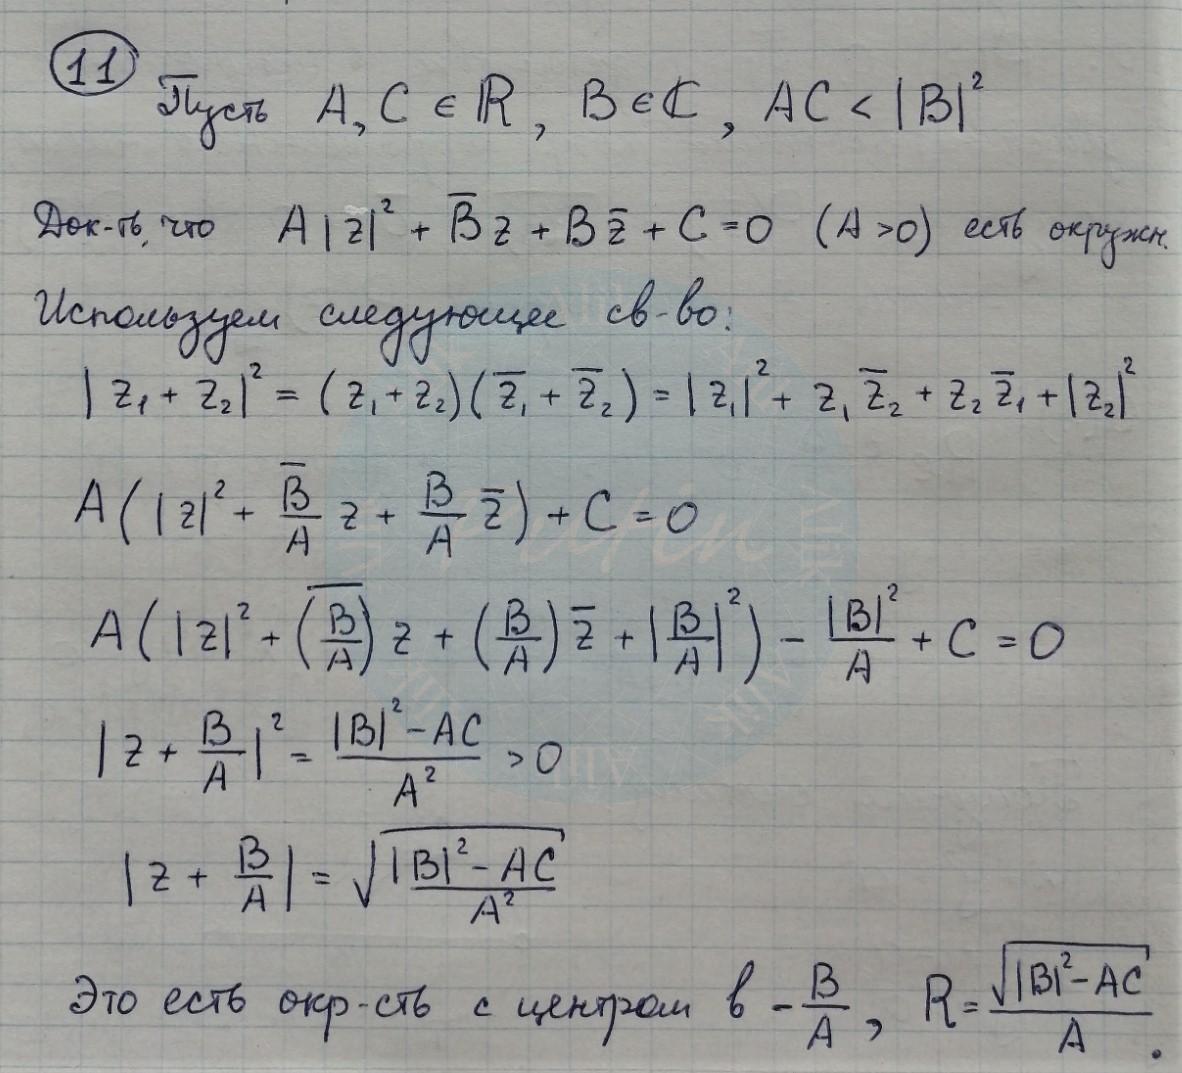 11
Пусть A, C ∈ ℝ, B ∈ ℂ, AC < |B|²
Док-ть, что A|z|² + B̅z + Bz̅ + C = 0 (A > 0) есть окружн.
Используем следующее св-во:
|z₁ + z₂|² = (z₁ + z₂)(z̅₁ + z̅₂) = |z₁|² + z₁z̅₂ + z₂z̅₁ + |z₂|²
A(|z|² + B̅/A z + B/A z̅) + C = 0
A(|z|² + \overline{(B/A)} z + (B/A) z̅ + |B/A|²) − |B|²/A + C = 0
|z + B/A|² = (|B|² − AC)/A² > 0
|z + B/A| = √((|B|² − AC)/A²)
Это есть окр-сть с центром в −B/A, R = √(|B|² − AC)/A.